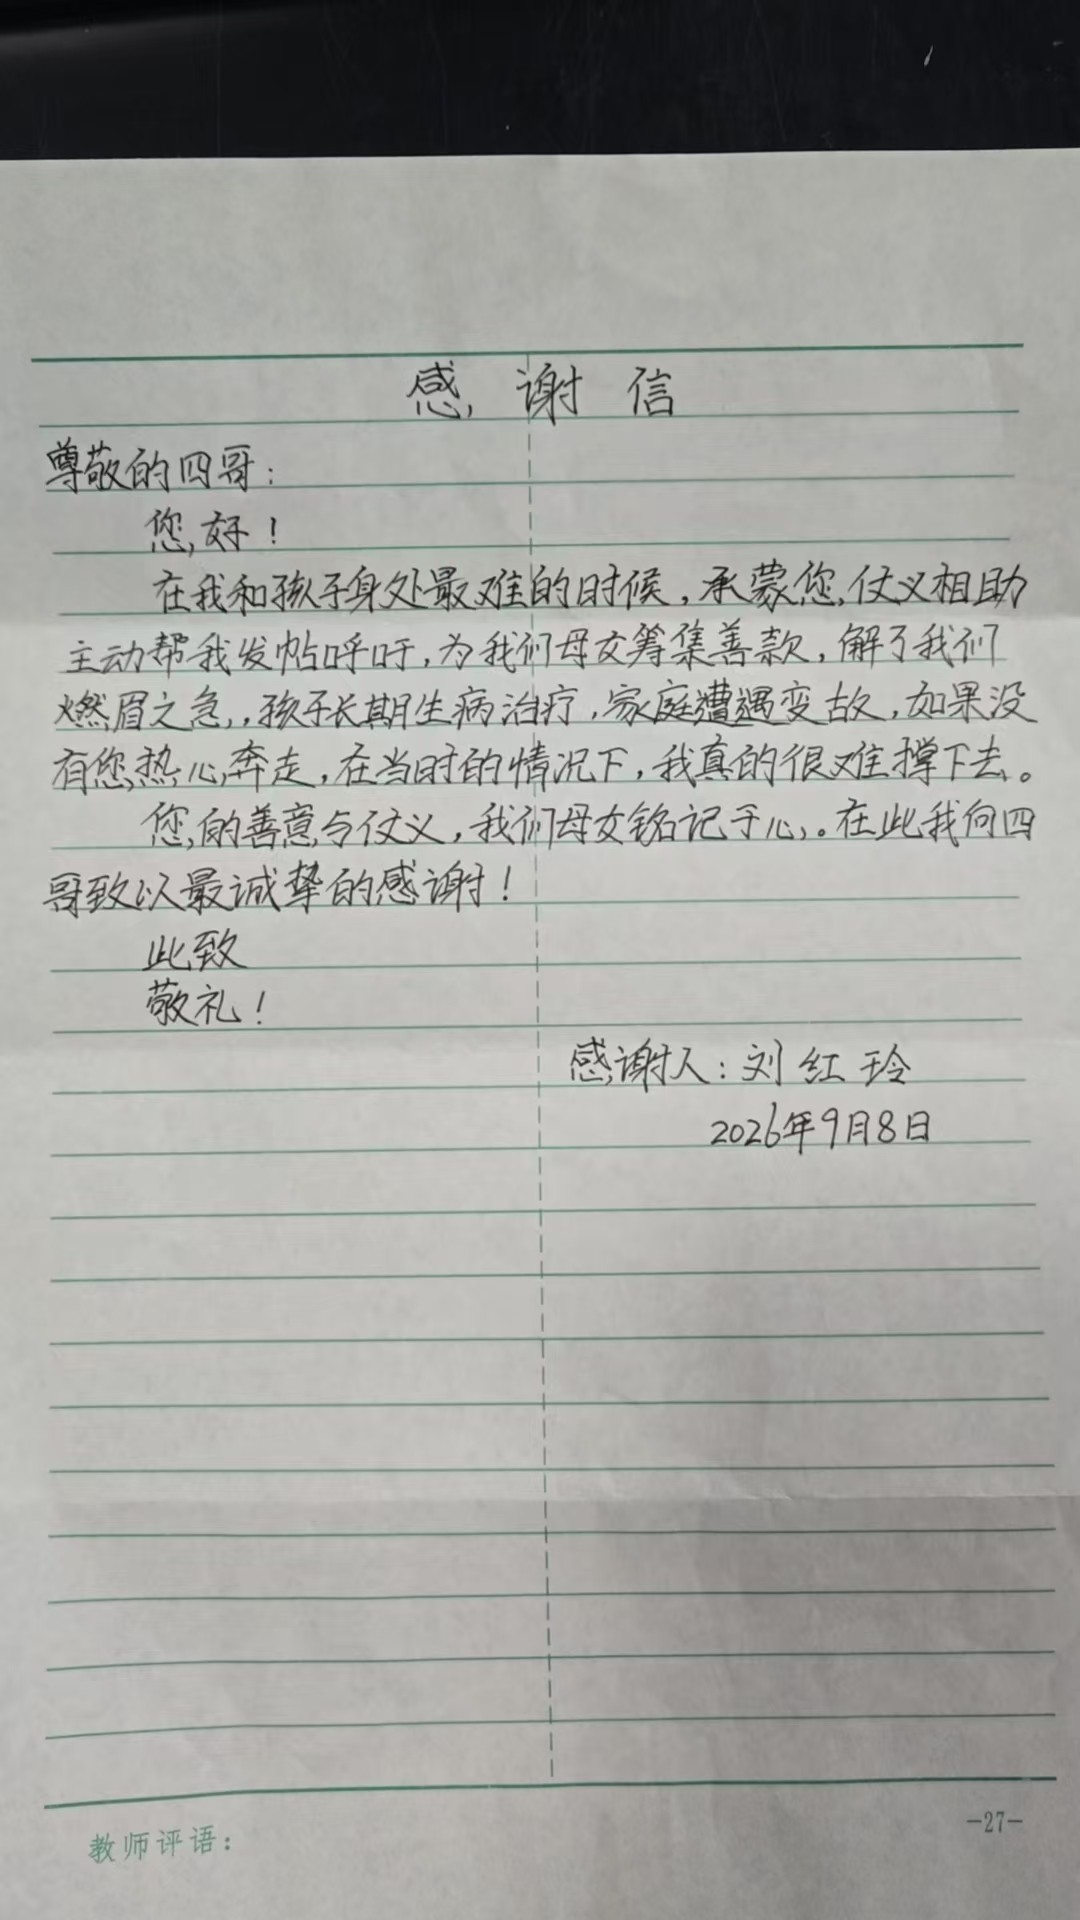 感谢信
尊敬的四哥：
您好！
在我和孩子身处最难的时候，承蒙您仗义相助
主动帮我发帖呼吁，为我们母女筹集善款，解了我们
燃眉之急，孩子长期生病治疗，家庭遭遇变故，如果没
有您热心奔走，在当时的情况下，我真的很难撑下去。
您的善意与仗义，我们母女铭记于心。在此我向四
哥致以最诚挚的感谢！
此致
敬礼！
感谢人：刘红玲
2026年9月8日
教师评语：
-27-